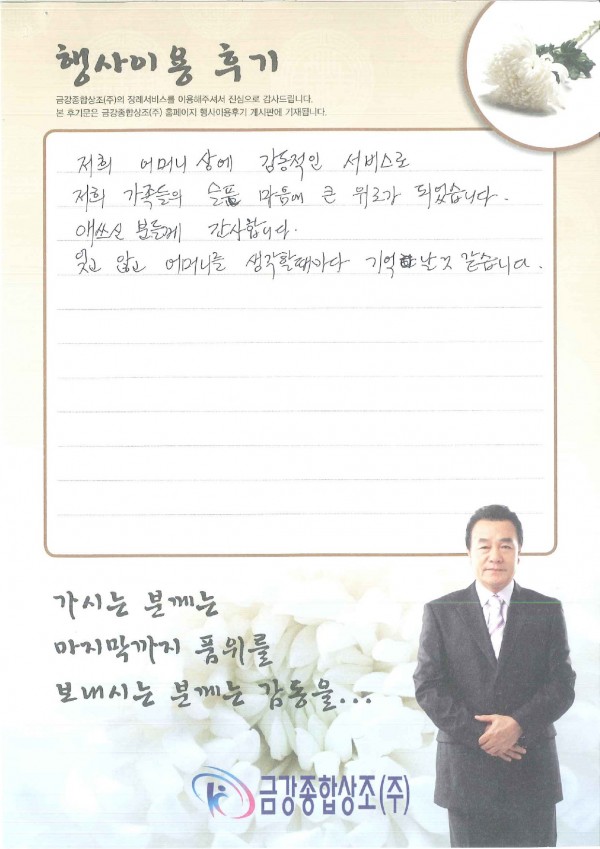 행사이용 후기
금강종합상조(주)의 장례서비스를 이용해주셔서 진심으로 감사드립니다.
본 후기문은 금강종합상조(주) 홈페이지 행사이용후기 게시판에 기재됩니다.
저희 어머니 상에 감동적인 서비스로
저희 가족들의 슬픔 마음에 큰 위로가 되었습니다.
애쓰신 분들께 감사합니다.
잊고 않고 어머니를 생각할때마다 기억 날것 같습니다.
가시는 분께는
마지막까지 품위를
보내시는 분께는 감동을...
금강종합상조(주)